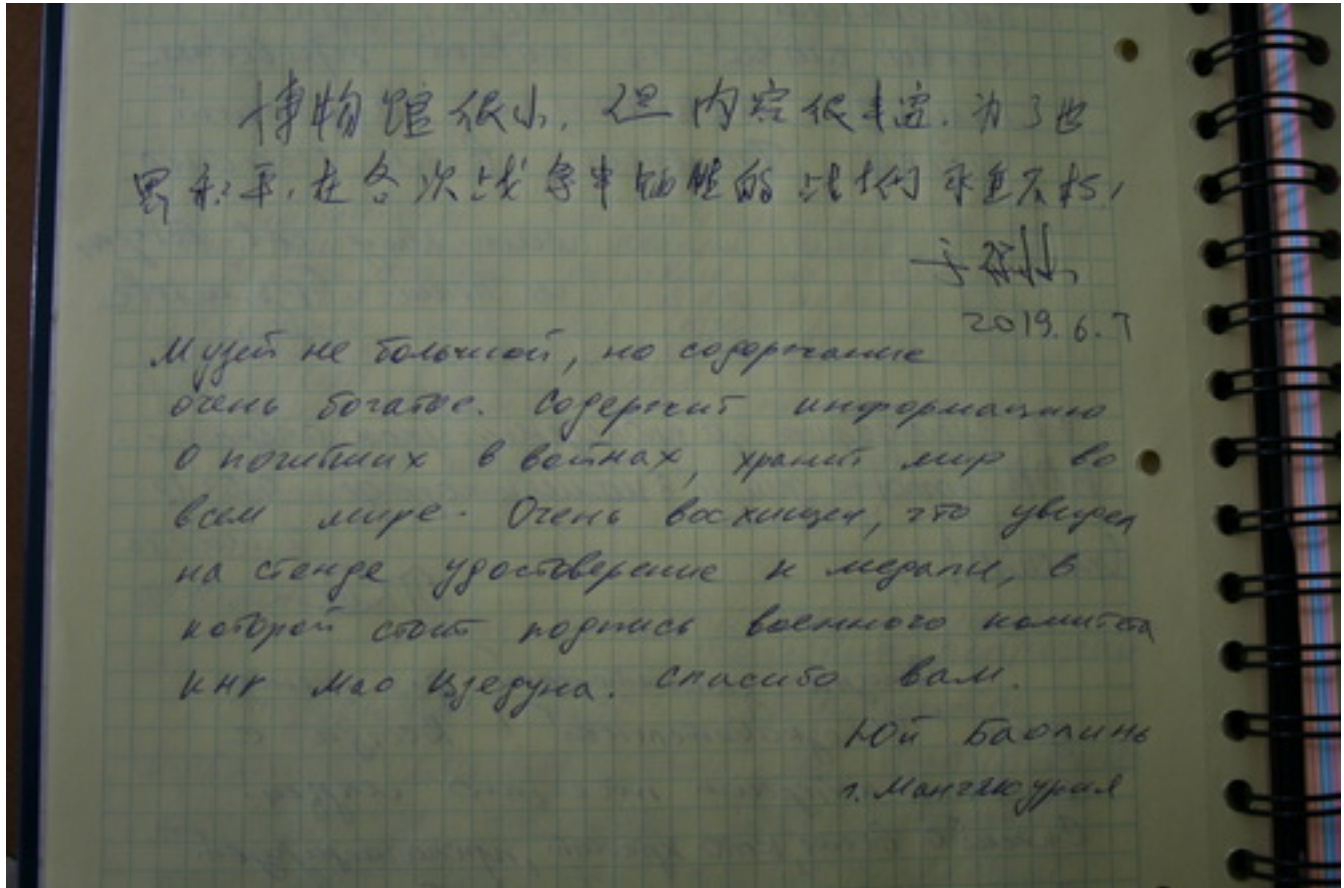 博物馆很小，但内容很丰富．为了世
界和平，在各次战争中牺牲的战士们永垂不朽，
于
2019.6.7
Музей не большой, но содержание
очень богатое. Содержит информацию
о погибших в войнах, хранит мир во
всем мире. Очень восхищен, что увидел
на стенде удостоверение к медали, в
которой стоит подпись военного комитета
КНР Мао Цзедуна. Спасибо вам.
Юй Баолинь
г. Манчжурия